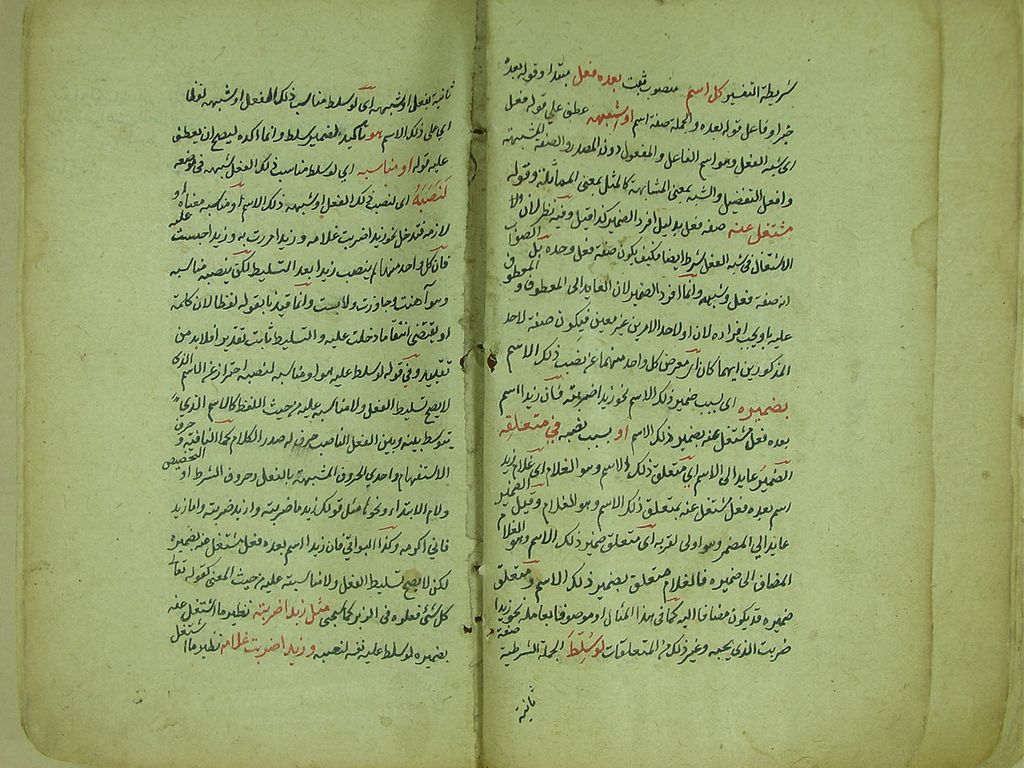 شريطة التفسير كل اسم منصوب وقعت بعده فعل مبتدا وقوله بعده
خبر او فاعل قوله بعده والجملة صفة اسم او شبهه عطف على قوله فعل
اى شبه الفعل وهو اسم الفاعل والمفعول دون المصدر والصفة المشبهة
وافعل التفضيل والشبه بمعنى المشابهة كالمثل بمعنى المماثلة وقوله
مشتغل عنه صفة فعل بدليل افراد الضمير كذا قيل وفيه نظر لان
الاشتغال فى شبه الفعل شرط ايضا فكيف يكون صفة فعل وحده بل الصواب
انه صفة فعل وشبهه وانما افرد الضمير لان العايد الى المعطوف والمعطوف
عليه باو يجب افراده لان او لاحد الامرين غير معين فيكون صفة لاحد
المذكورين ايهما كان اى معرض كل واحد منهما عن نصب ذلك الاسم
بضميره اى بسبب ضمير ذلك الاسم نحو زيدا ضربته فان زيدا اسم
بعده فعل مشتغل عنه بضمير ذلك الاسم او بسبب نصبه فى متعلقه
الضمير عايد الى الاسم اى متعلق ذلك الاسم وهو الغلام اى غلام زيد
اسم بعده فعل مشتغل عنه بمتعلق ذلك الاسم وهو الغلام وقيل الضمير
عايد الى المضمر وهو اولى لقربه اى متعلق ضمير ذلك الاسم وهو الغلام
المضاف الى ضميره فالغلام متعلق بضمير ذلك الاسم ومتعلق
ضميره قد يكون مضافا اليه كما فى هذا المثال او موصوفا بعامله نحو زيدا
ضربت الذى يحبه وغير ذلك من المتعلقات لو سلط الجملة الشرطية صفة
ثانية
ثانية لفعل او شبهه اى لو سلط مناسب ذلك الفعل او شبهه لفظا
اى على ذلك الاسم هو تأكيد لضمير سلط وانما اكده ليصح ان يعطف
عليه قوله او مناسبه اى لو سلط مناسب ذلك الفعل او شبهه فى موضعه
لنصبه اى لنصب ذلك الفعل او شبهه ذلك الاسم او مناسبه معناه او
لازمه فتدخل نحو زيدا ضربت غلامه وزيدا مررت به وزيدا حبست عليه
فان كل واحد منها لم ينصب زيدا بعد التسليط لكن ينصبه مناسبه
وهو اهنت وجاوزت ولابست وانما قيدنا بقوله لفظا لان كلمة
لو يقتضى انتفاء ما دخلت عليه والتسليط ثابت تقديرا فلا بد من
تقييد وفى قوله لو سلط عليه هو او مناسبه لنصبه احتراز عن الاسم الذى
لا يصح تسليط الفعل ولا مناسبه عليه من حيث اللفظ كالاسم الذى
يتوسط بينه وبين الفعل الناصب حرف له صدر الكلام كما النافية وحرف
الاستفهام واحدى الحروف المشبهة بالفعل وحروف الشرط او التحضيض
ولام الابتداء ونحوها مثل قولك زيد ما ضربته وازيد ضربته واما زيد
فانى اكرمه وكذا البواقى فان زيدا اسم بعده فعل مشتغل عنه بضميره
لكن لا يصح تسليط الفعل ولا مناسبته عليه من حيث المعنى كقوله تعالى
كل شئ فعلوه فى الزبر كما سيجئ مثل زيدا ضربته نظير ما اشتغل عنه
بضميره لو سلط عليه نفسه لنصبه وزيدا ضربت غلامه نظير ما اشتغل